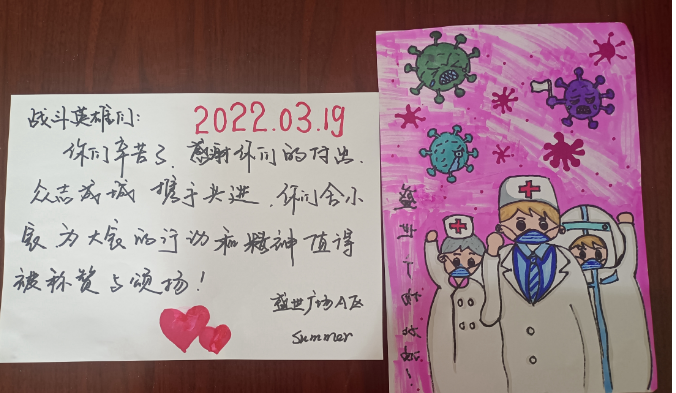 战斗英雄们:
2022.03.19
你们辛苦了 感谢你们的付出.
众志成城 携手共进,你们舍小
家为大家的行动和精神值得
被称赞与颂扬!
盛世广场A区
Summer